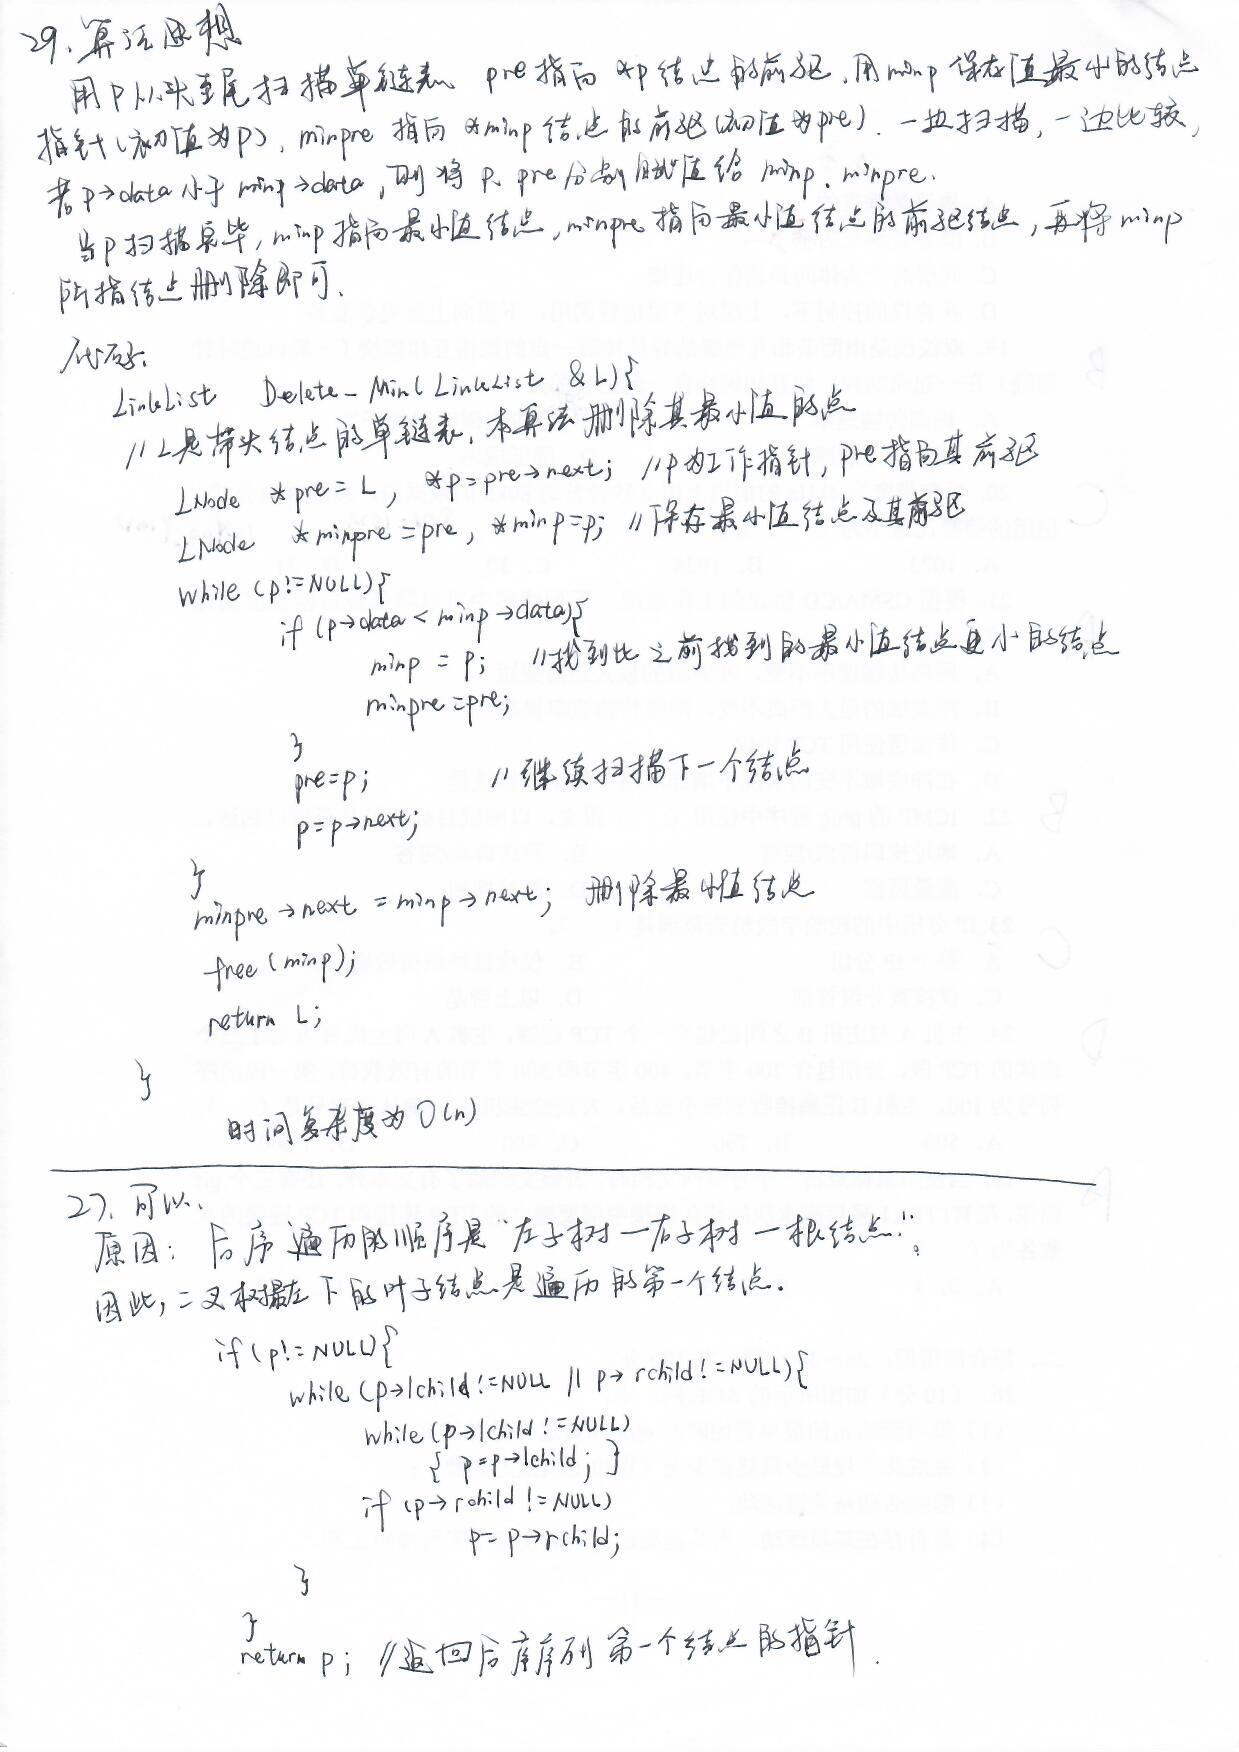 29. 算法思想
用P从头至尾扫描单链表 pre指向*p结点的前驱,用minp保存值最小的结点
指针(初值为p), minpre 指向 *minp 结点的前驱(初值为pre). 一边扫描, 一边比较,
若p→data小于minp→data,则将P、pre分别赋值给 minp、minpre.
当P扫描完毕, minp指向最小值结点, minpre指向最小值结点的前驱结点, 再将minp
所指结点删除即可.
代码:
LinkList Delete_Min(LinkList &L){
//L是带头结点的单链表, 本算法删除其最小值的点
LNode *pre=L, *p=pre→next; //P为工作指针, pre指向其前驱
LNode *minpre=pre, *minp=p; //保存最小值结点及其前驱
while (p!=NULL){
if (p→data < minp→data){
minp = p; //找到比之前找到的最小值结点更小的结点
minpre=pre;
}
pre=p; //继续扫描下一个结点
p=p→next;
}
minpre→next = minp→next; 删除最小值结点
free(minp);
return L;
}
时间复杂度为O(n)
27. 可以.
原因: 后序遍历的顺序是“左子树—右子树—根结点.”。
因此, 二叉树最左下的叶子结点是遍历的第一个结点.
if(p!=NULL){
while(p→lchild!=NULL || p→rchild!=NULL){
while(p→lchild!=NULL)
{ p=p→lchild; }
if (p→rchild!=NULL)
p=p→rchild;
}
}
return p; //返回后序序列第一个结点的指针.